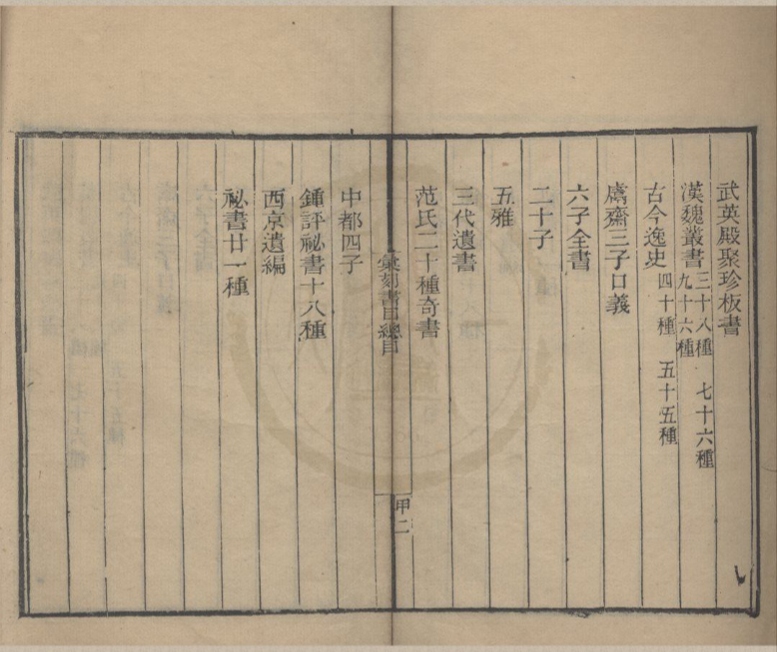 武英殿聚珍板書
漢魏叢書 三十八種 七十六種 九十六種
古今逸史 四十種 五十五種
鬳齋三子口義
六子全書
二十子
五雅
三代遺書
范氏二十種奇書
彙刻書目總目
甲二
中都四子
鍾評祕書十八種
西京遺編
祕書廿一種